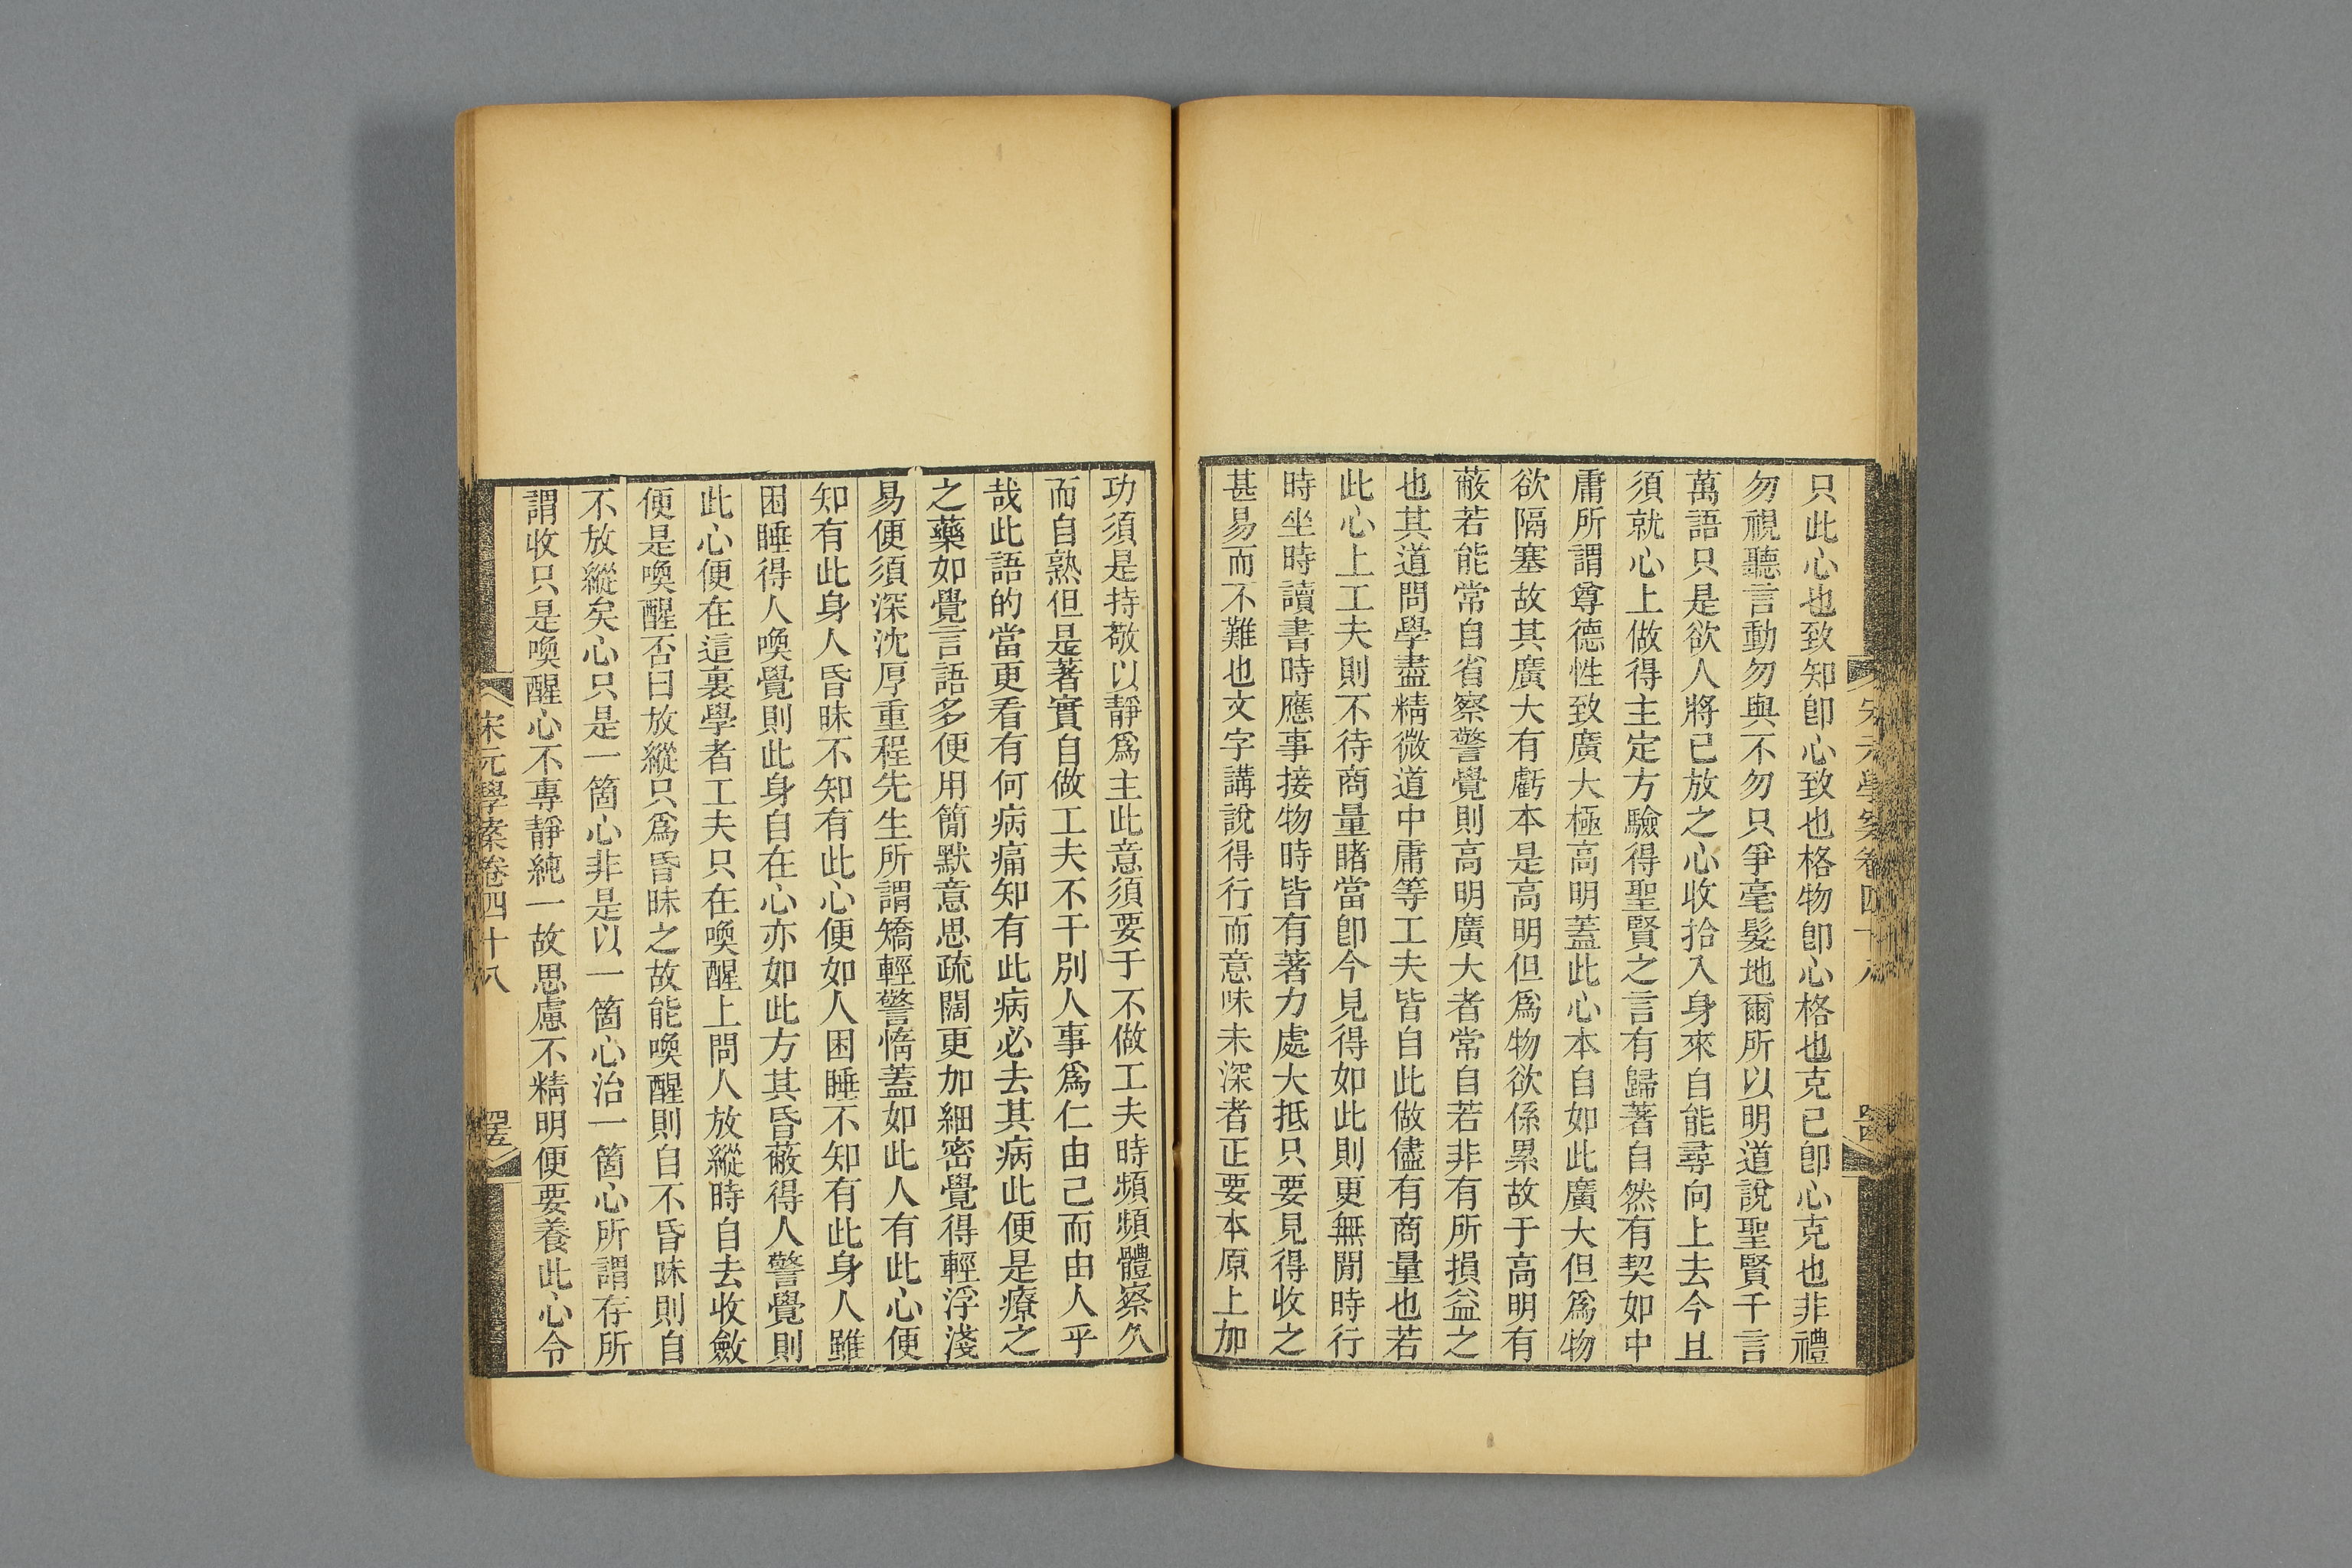 只此心也致知卽心致也格物卽心格也克己卽心克也非禮
勿視聽言動勿與不勿只爭毫髮地爾所以明道說聖賢千言
萬語只是欲人將已放之心收拾入身來自能尋向上去今且
須就心上做得主定方驗得聖賢之言有歸著自然有契如中
庸所謂尊德性致廣大極高明蓋此心本自如此廣大但爲物
欲隔塞故其廣大有虧本是高明但爲物欲係累故于高明有
蔽若能常自省察警覺則高明廣大者常自若非有所損益之
也其道問學盡精微道中庸等工夫皆自此做儘有商量也若
此心上工夫則不待商量睹當卽今見得如此則更無閒時行
時坐時讀書時應事接物時皆有著力處大抵只要見得收之
甚易而不難也文字講說得行而意味未深者正要本原上加
功須是持敬以靜爲主此意須要于不做工夫時頻頻體察久
而自熟但是著實自做工夫不干別人事爲仁由己而由人乎
哉此語的當更看有何病痛知有此病必去其病此便是療之
之藥如覺言語多便用簡默意思疏闊更加細密覺得輕浮淺
易便須深沈厚重程先生所謂矯輕警惰蓋如此人有此心便
知有此身人昏昧不知有此心便如人困睡不知有此身人雖
困睡得人喚覺則此身自在心亦如此方其昏蔽得人警覺則
此心便在這裏學者工夫只在喚醒上問人放縱時自去收斂
便是喚醒否曰放縱只爲昏昧之故能喚醒則自不昏昧則自
不放縱矣心只是一箇心非是以一箇心治一箇心所謂存所
謂收只是喚醒心不專靜純一故思慮不精明便要養此心令
宋元學案卷四十八